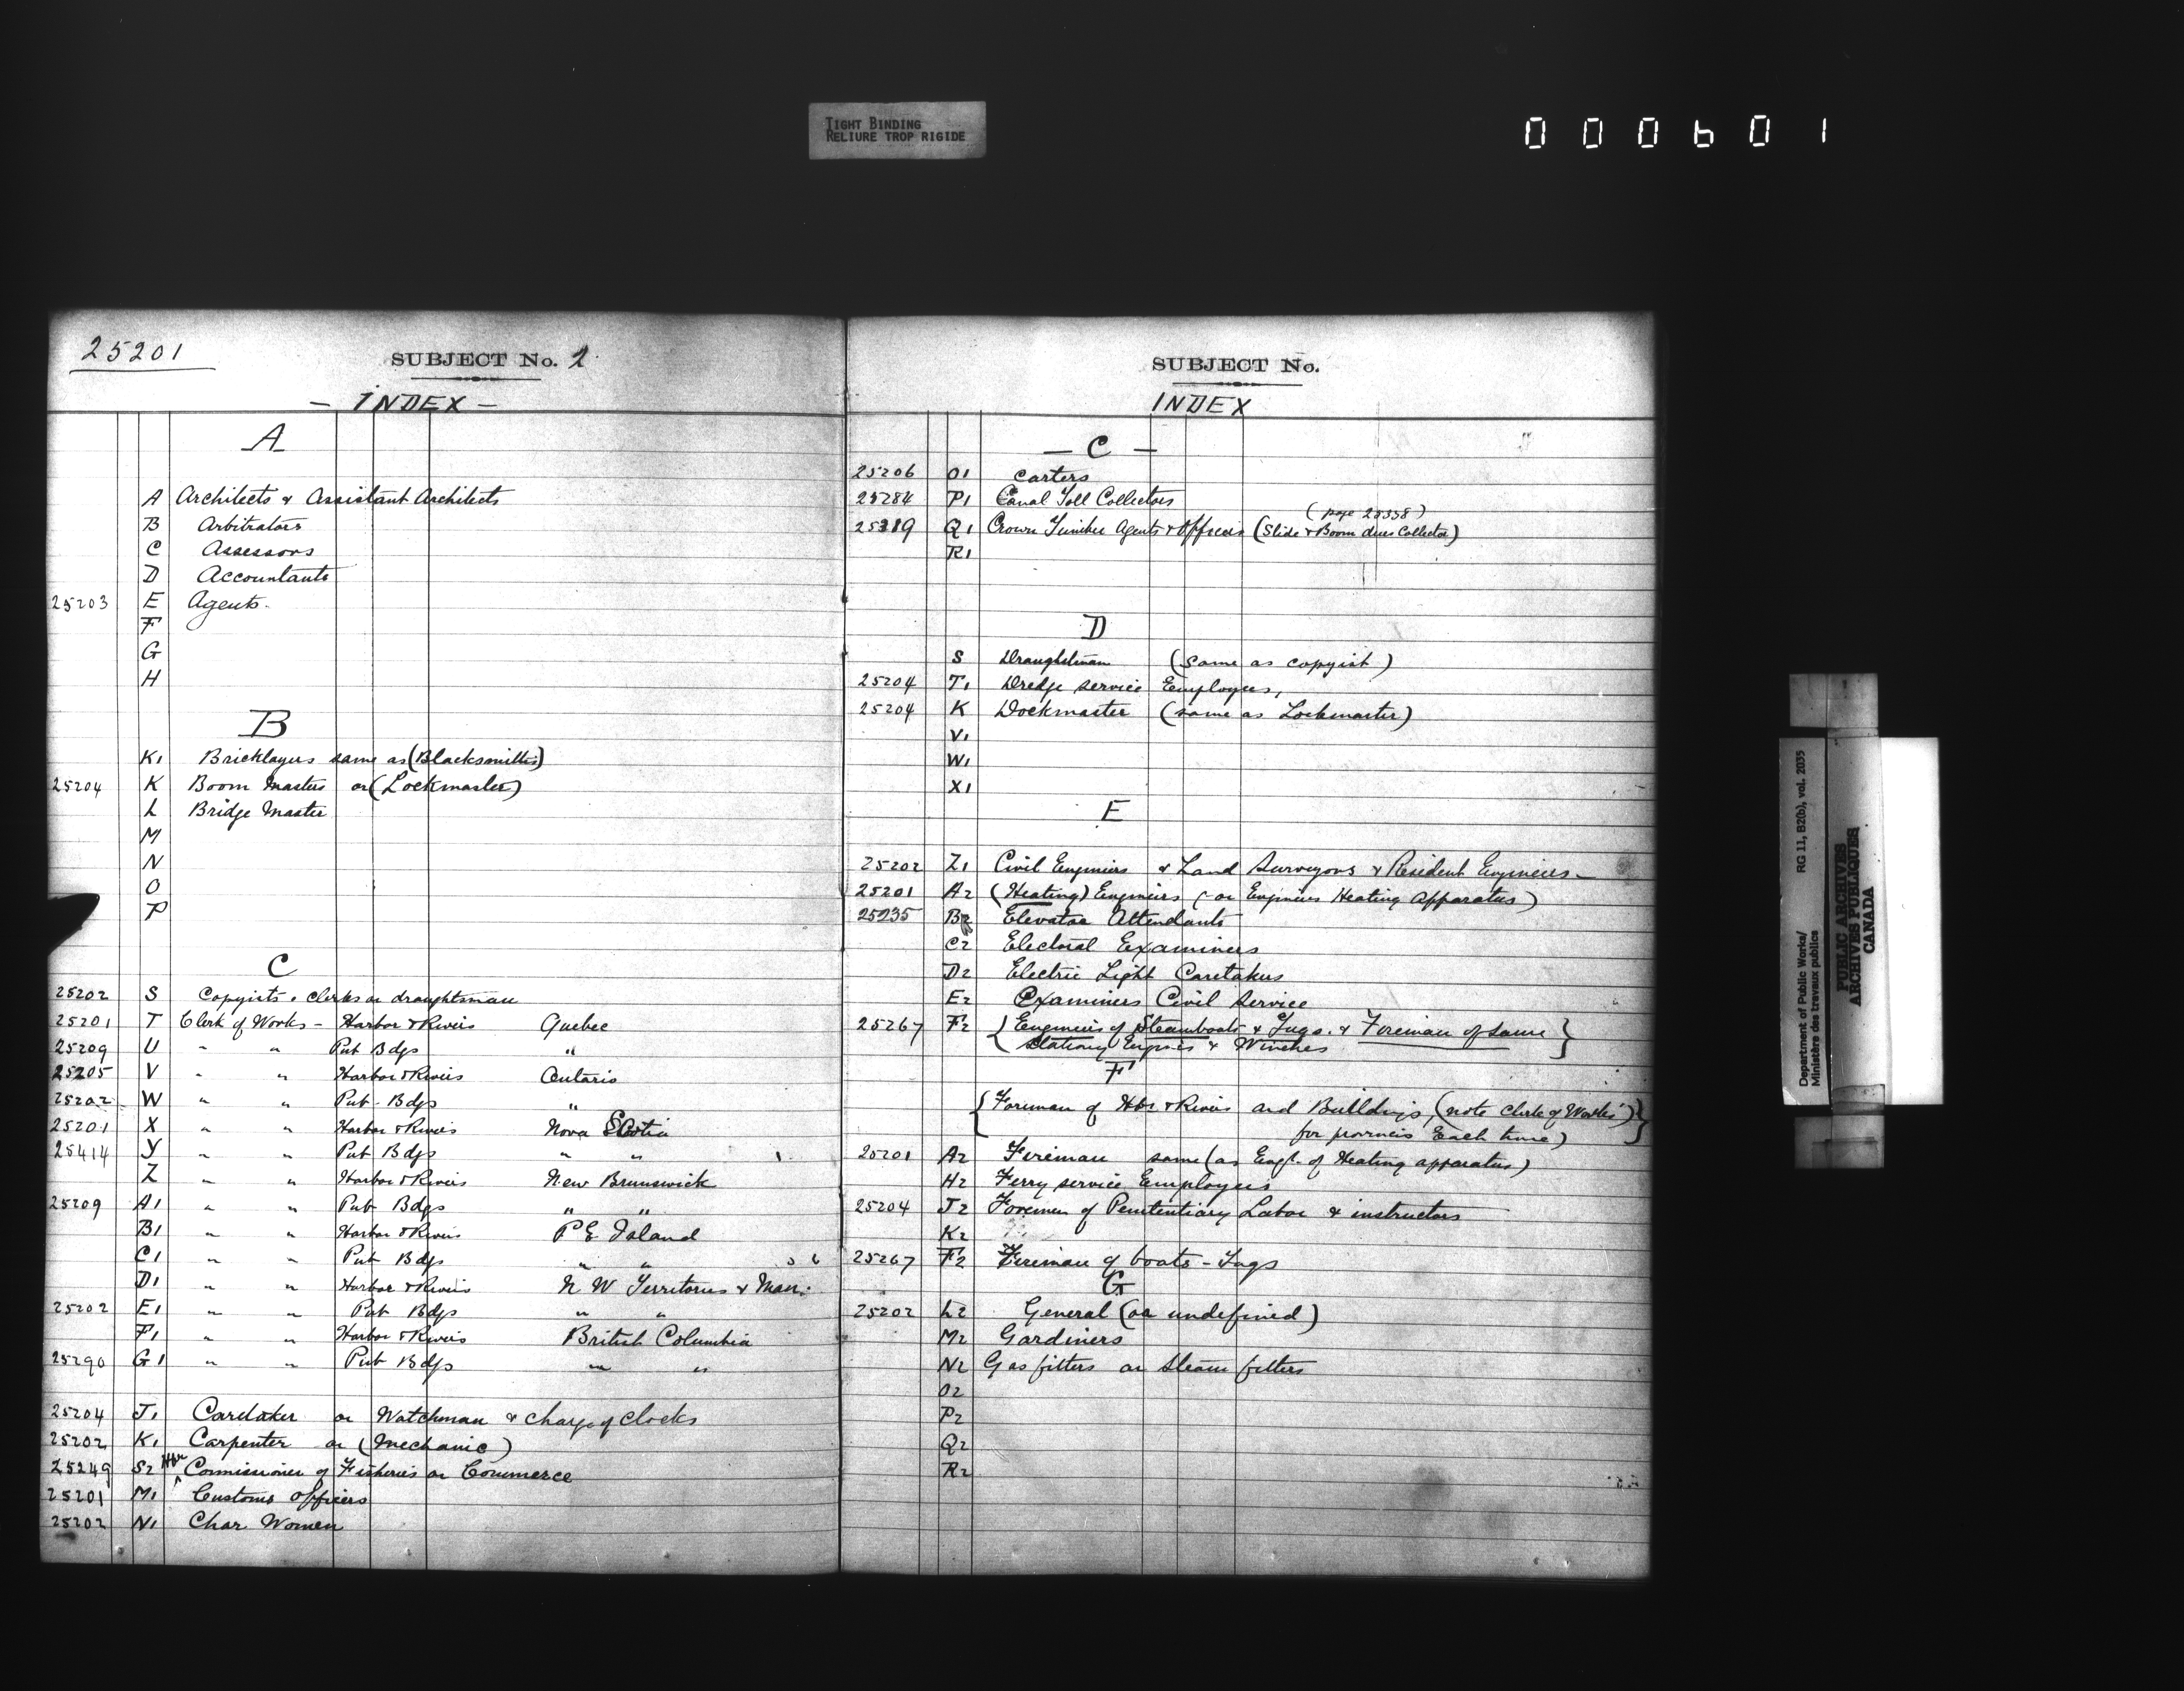 TIGHT BINDING
RELIURE TROP RIGIDE
000601
25201
SUBJECT No. 2
- INDEX -
A
A Architects & Assistant Architects
B Arbitrators
C Assessors
D Accountants
25203 E Agents.
F
G
H
B
K1 Bricklayers same as (Blacksmiths)
25204 K Boom Masters or (Lockmaster)
L Bridge Master
M
N
O
P
C
25202 S Copyists, clerks or draughtsman
25201 T Clerk of Works - Harbor & Rivers Quebec
25209 U " " Pub Bdgs "
25205 V " " Harbor & Rivers Ontario
25202 W " " Pub. Bdgs "
25201 X " " Harbor & Rivers Nova Scotia
25414 Y " " Pub Bdgs " "
Z " " Harbor & Rivers New Brunswick
25209 A1 " " Pub Bdgs " "
B1 " " Harbor & Rivers P E Island
C1 " " Pub Bdgs " "
D1 " " Harbor & Rivers N W Territories & Man.
25202 E1 " " Pub Bdgs " "
F1 " " Harbor & Rivers British Columbia
25290 G1 " " Pub Bdgs " "
25204 J1 Caretaker or Watchman & charge of clocks
25202 K1 Carpenter or (Mechanic)
25249 S2 Commissioner of Fisheries or Commerce
25201 M1 Customs Officers
25202 N1 Char Women
SUBJECT No.
INDEX
- C -
25206 O1 Carters
25284 P1 Canal Toll Collectors
(page 25358)
25319 Q1 Crown Timber Agents & Officers (Slide & Boom dues Collector)
R1
D
S Draughtsman (same as copyist)
25204 T1 Dredge service Employees,
25204 K Dockmaster (same as Lockmaster)
V1
W1
X1
E
25202 Z1 Civil Engineers & Land Surveyors & Resident Engineers -
25201 A2 (Heating) Engineers (or Engineers Heating Apparatus)
25235 B2 Elevator Attendants
C2 Electoral Examiners
D2 Electric Light Caretakers
E2 Examiners Civil Service
25267 F2 { Engineers of Steamboats & Tugs. & Fireman of same }
Stationary Engines & Winches
F
{ Foreman of Hbs & Rivers and Buildings, (note clerk of Works) }
for provinces Each time)
25201 A2 Fireman same (as Engr. of Heating apparatus)
H2 Ferry service Employees
25204 J2 Foremen of Penitentiary Labor & instructors
K2
25267 F2 Fireman of boats - Tugs
G
25202 L2 General (or undefined)
M2 Gardiners
N2 Gas fitters or Steam fitters
O2
P2
Q2
R2
Department of Public Works/ RG 11, B2(b), vol. 2035
Ministère des travaux publics
PUBLIC ARCHIVES
ARCHIVES PUBLIQUES
CANADA